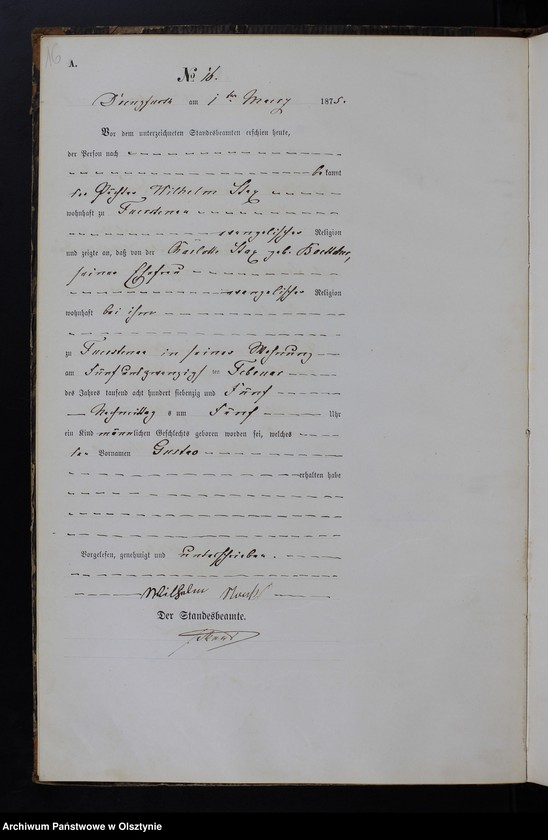 16
A.
№ 16.
am 1ten März 1875.
Vor dem unterzeichneten Standesbeamten erschien heute,
der Person nach
bekannt
der Wilhelm
wohnhaft zu
evangelischer Religion
und zeigte an, daß von der geb.
seiner Ehefrau
evangelischer Religion
wohnhaft bei ihm
zu in seiner Wohnung
am fünf und zwanzigsten Februar
des Jahres tausend acht hundert siebenzig und fünf
Nachmittags um fünf Uhr
ein Kind männlichen Geschlechts geboren worden sei, welches
den Vornamen Gustav
erhalten habe
Vorgelesen, genehmigt und unterschrieben.
Wilhelm
Der Standesbeamte.
Archiwum Państwowe w Olsztynie